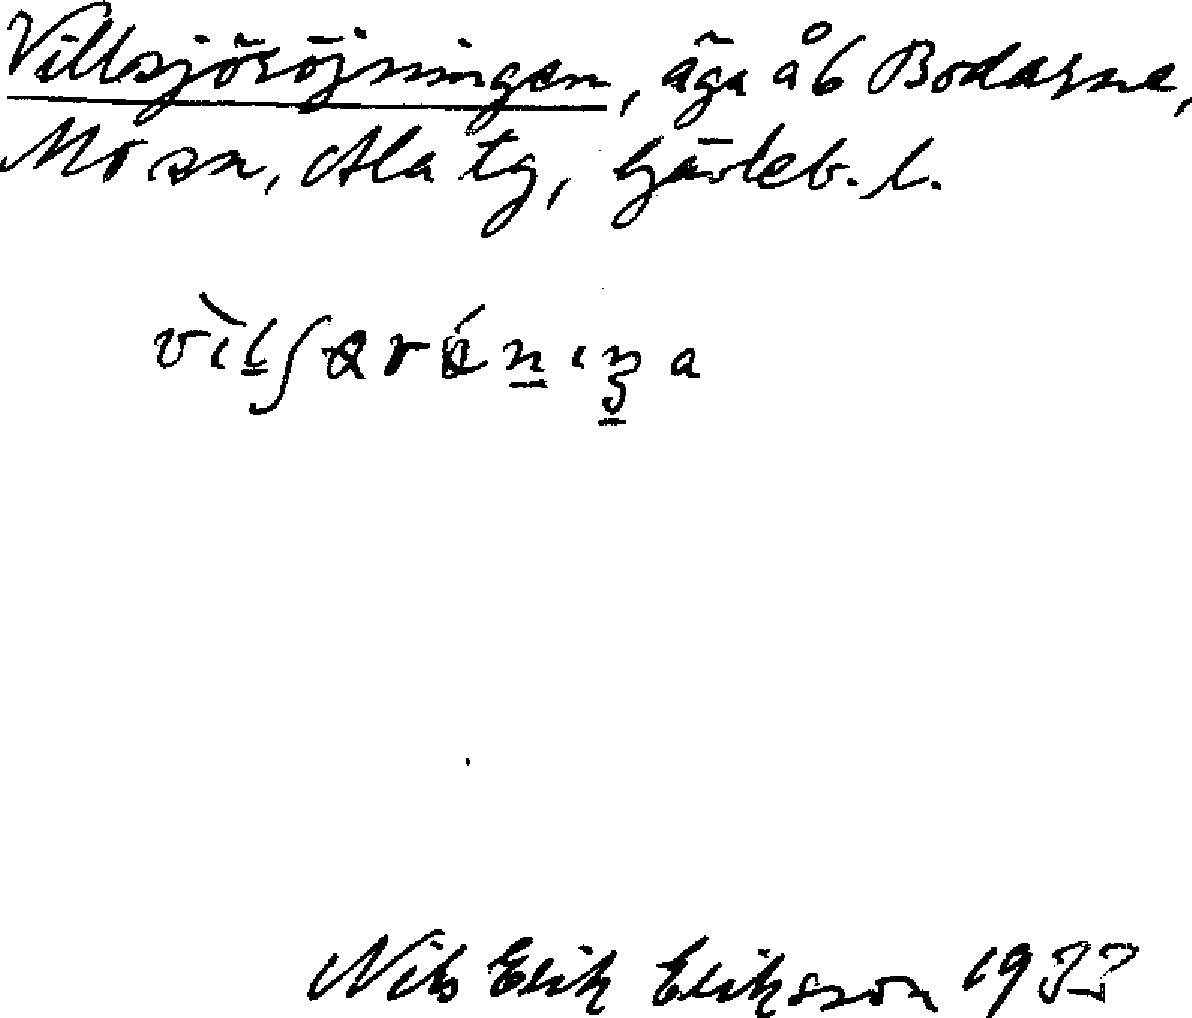 Villsjöröjningen, äga å b Bodarne,
Mo sn, Ala tg, Gävleb. l.
Nils Erik Eriksson 1933